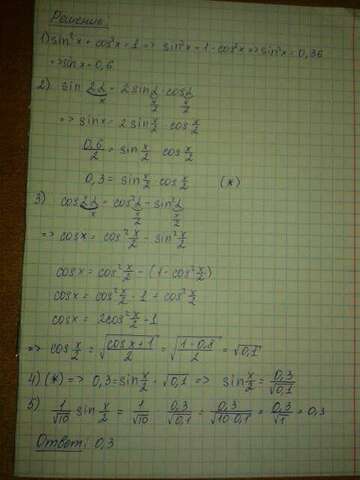 Решение.
1) sin²x + cos²x = 1 => sin²x = 1 - cos²x => sin²x = 0,36
=> sinx = 0,6
2) sin 2α = 2sinα · cosα
x x/2 x/2
=> sinx = 2 sin x/2 · cos x/2
0,6/2 = sin x/2 · cos x/2
0,3 = sin x/2 · cos x/2 (*)
3) cos 2α = cos²α - sin²α
x x/2 x/2
=> cosx = cos² x/2 - sin² x/2
cosx = cos² x/2 - (1 - cos² x/2)
cosx = cos² x/2 - 1 + cos² x/2
cosx = 2cos² x/2 - 1
=> cos x/2 = √((cosx + 1)/2) = √((1 - 0,8)/2) = √0,1
4) (*) => 0,3 = sin x/2 · √0,1 => sin x/2 = 0,3/√0,1
5) 1/√10 sin x/2 = 1/√10 · 0,3/√0,1 = 0,3/√(10·0,1) = 0,3/√1 = 0,3
Ответ: 0,3